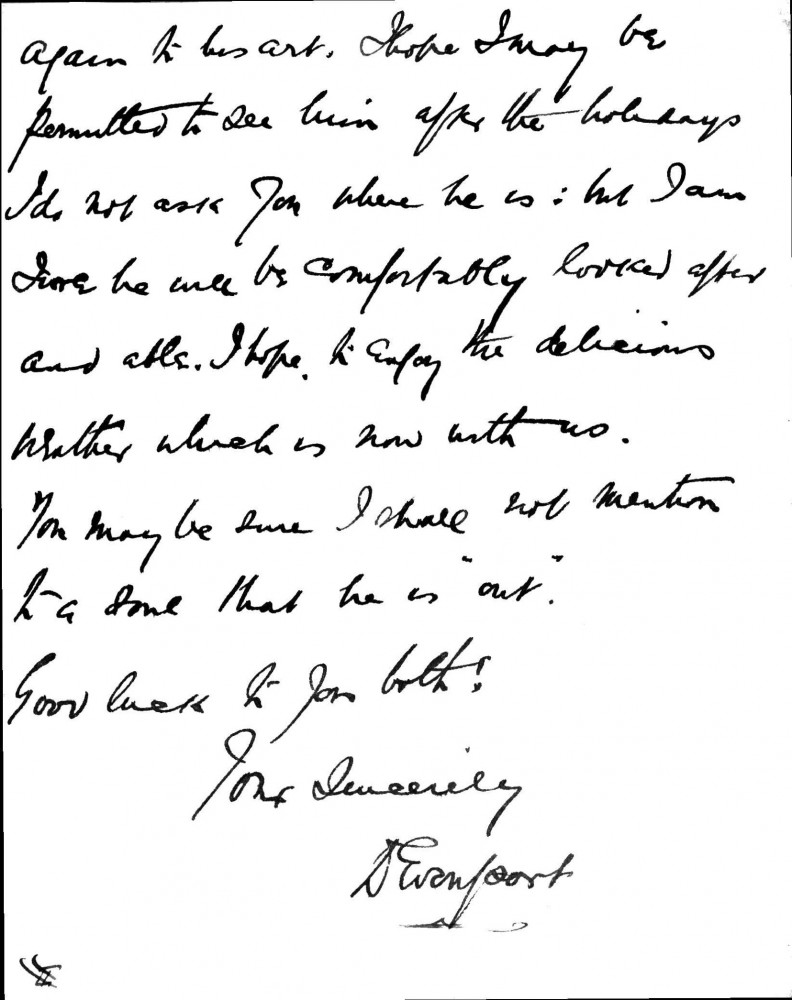 again to his art. I hope I may be
permitted to see him after the holidays
I do not ask you where he is: but I am
sure he will be comfortably looked after
and able. I hope, to enjoy the delicious
weather which is now with us.
You may be sure I shall not mention
to a soul that he is "out".
Good luck to you both!
Yours sincerely
Devonport